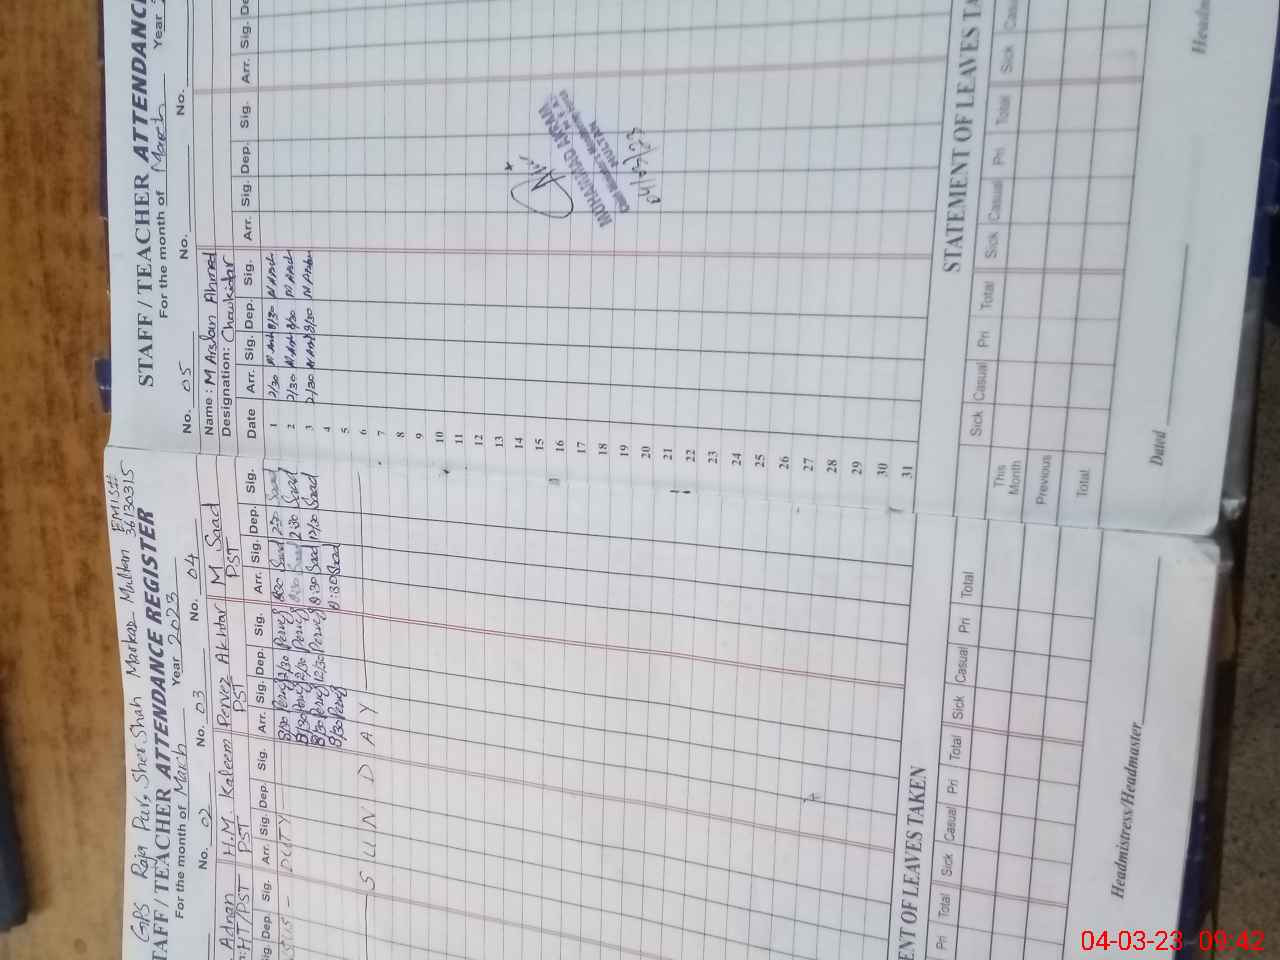 GPS Raja Pur, Sher Shah Markaz Multan EMIS# 36130315
STAFF / TEACHER ATTENDANCE REGISTER
For the month of March Year 2023
No. 02 No. 03 No. 04
Adnan H.M. Kaleem Pervez Akhtar M Saad
HT/PST PST PST PST
Sig. Dep. Sig. Arr. Sig. Dep. Sig. Arr. Sig. Dep. Sig. Arr. Sig. Dep. Sig.
DUTY 8/30 Pervez 2/30 Pervez 8:30 Saad 2:30 Saad
8/30 Pervez 2/30 Pervez 8:30 Saad 2:30 Saad
8/30 Pervez 12/30 Pervez 8:30 Saad 12/30 Saad
8/30 Pervez 8:30 Saad
SUNDAY
STATEMENT OF LEAVES TAKEN
Pri Total Sick Casual Pri Total Sick Casual Pri Total
Headmistress/Headmaster
STAFF / TEACHER ATTENDANCE
For the month of March Year
No. 05 No. No.
Name : M Arslan Ahmed
Designation: Chowkidar
Date Arr. Sig. Dep. Sig. Arr. Sig. Dep. Sig. Arr. Sig.
1 2/30 8/30
2 2/30 8/30
3 2/30 8/30
4
5
6
7
8
9
10
11
12
13
14
15
16
17
18
19
20
21
22
23
24
25
26
27
28
29
30
31
MUHAMMAD AKRAM
MULTAN
04/03/23
STATEMENT OF LEAVES TA
Sick Casual Pri Total Sick Casual Pri Total Sick
This Month
Previous
Total
Dated
04-03-23 09:42